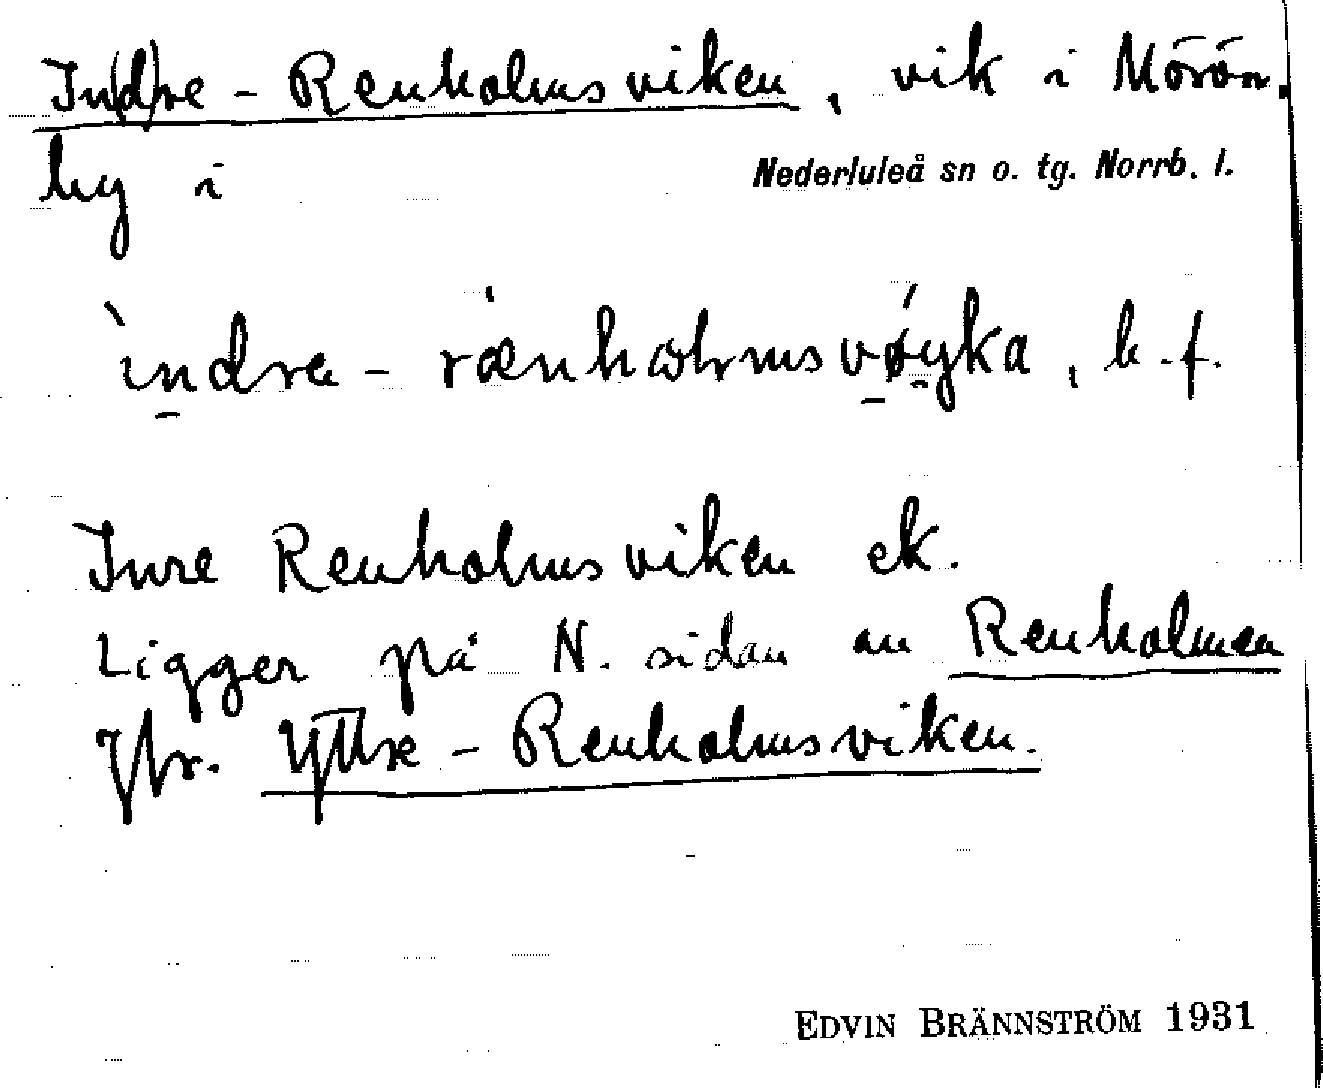 In(d)re - Renholmsviken, vik i Mörön,
by i Nederluleå sn o. tg. Norrb. l.
ìndra - rænholmsvøyka, b.f.
Inre Renholmsviken ek.
Ligger på N. sidan av Renholmen
Jfr. Yttre - Renholmsviken.
EDVIN BRÄNNSTRÖM 1931